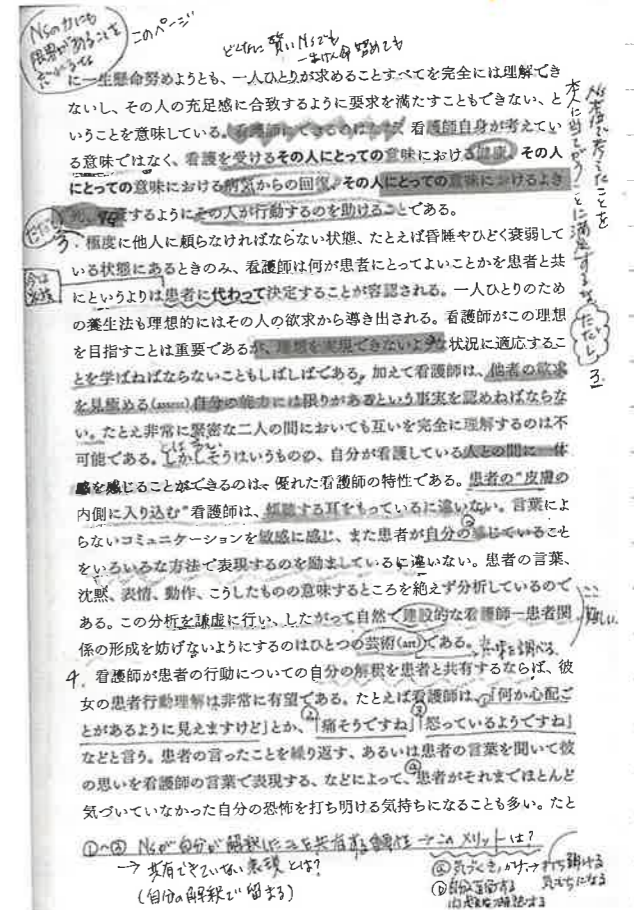 Nsの力にも
限界があることを
このページ
どんなに賢いNsでも
一生けん命努めても
に一生懸命努めようとも、一人ひとりが求めることすべてを完全には理解でき
ないし、その人の充足感に合致するように要求を満たすこともできない、と
いうことを意味している。看護師にできるのはただ、看護師自身が考えてい
る意味ではなく、看護を受けるその人にとっての意味における健康、その人
にとっての意味における病気からの回復、その人にとっての意味におけるよき
死、に資するようにその人が行動するのを助けることである。
ただし
3.極度に他人に頼らなければならない状態、たとえば昏睡やひどく衰弱して
いる状態にあるときのみ、看護師は何が患者にとってよいことかを患者と共
にというよりは患者に代わって決定することが容認される。一人ひとりのため
の養生法も理想的にはその人の欲求から導き出される。看護師がこの理想
を目指すことは重要であるが、理想を実現できないような状況に適応するこ
とを学ばねばならないこともしばしばである。加えて看護師は、他者の欲求
を見極める(assess)自分の能力には限りがあるという事実を認めねばならな
い。たとえ非常に緊密な二人の間においても互いを完全に理解するのは不
可能である。しかしそうはいうものの、自分が看護している人との間に一体
感を感じることができるのは、優れた看護師の特性である。患者の"皮膚の
内側に入り込む"看護師は、傾聴する耳をもっているに違いない。言葉によ
らないコミュニケーションを敏感に感じ、また患者が自分の感じていること
をいろいろな方法で表現するのを励ましているに違いない。患者の言葉、
沈黙、表情、動作、こうしたものの意味するところを絶えず分析しているので
ある。この分析を謙虚に行い、したがって自然で建設的な看護師−患者関
係の形成を妨げないようにするのはひとつの芸術(art)である。
難しい
4.看護師が患者の行動についての自分の解釈を患者と共有するならば、彼
女の患者行動理解は非常に有望である。たとえば看護師は、①「何か心配ご
とがあるように見えますけど」とか、②「痛そうですね」③「怒っているようですね」
などと言う。患者の言ったことを繰り返す、あるいは患者の言葉を聞いて彼
の思いを看護師の言葉で表現する、などによって、患者がそれまでほとんど
気づいていなかった自分の恐怖を打ち明ける気持ちになることも多い。たと
①〜③ Nsが自分が解釈したことを共有する
→このメリットは?
→共有できていない表現とは?
(自分の解釈で留まる)
打ち明ける
気もちになる
ただし
3.